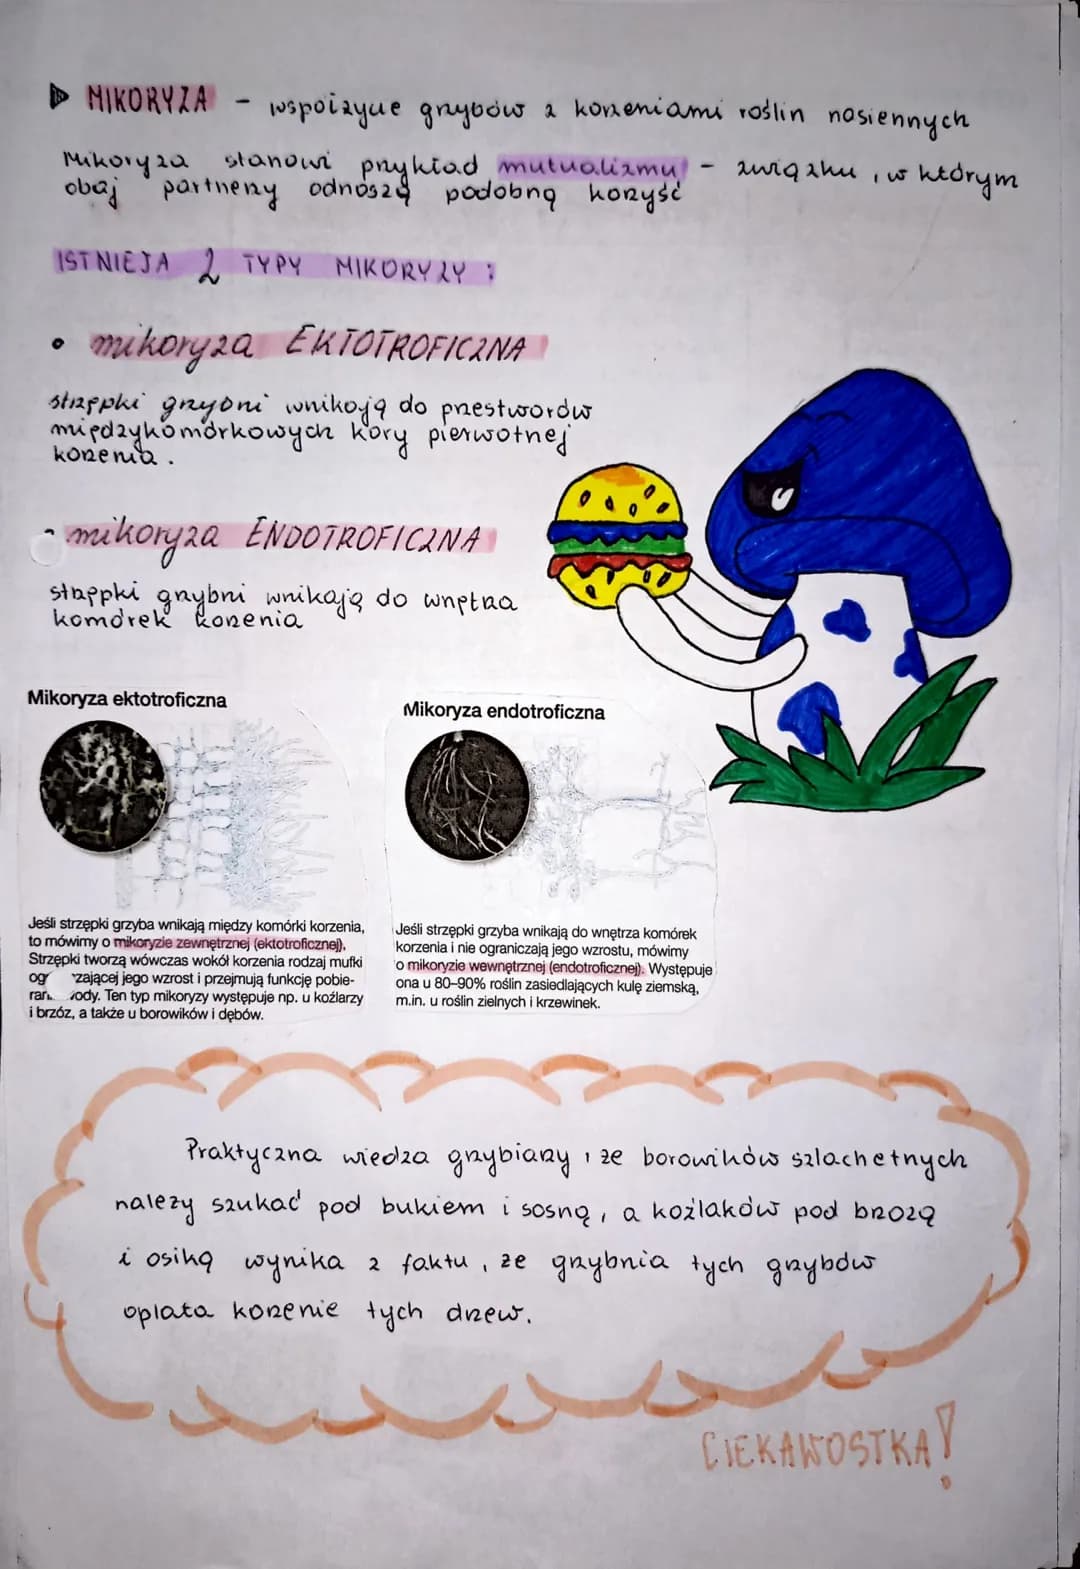 MIKORYZA - współżycie grzybów z korzeniami roślin nasiennych
Mikoryza stanowi przykład mutualizmu - związku, w którym
obaj partnerzy odnoszą podobną korzyść
ISTNIEJA 2 TYPY MIKORYZY :
• mikoryza EKTOTROFICZNA
strzępki grzybni wnikają do przestworów
międzykomórkowych kory pierwotnej
korzenia.
- mikoryza ENDOTROFICZNA
strzępki grzybni wnikają do wnętrza
komórek korzenia
Mikoryza ektotroficzna
Jeśli strzępki grzyba wnikają między komórki korzenia,
to mówimy o mikoryzie zewnętrznej (ektotroficznej).
Strzępki tworzą wówczas wokół korzenia rodzaj mufki
jego wzrost i przejmują funkcję pobie-
Ten typ mikoryzy występuje np. u koźlarzy
i brzóz, a także u borowików i dębów.
Mikoryza endotroficzna
Jeśli strzępki grzyba wnikają do wnętrza komórek
korzenia i nie ograniczają jego wzrostu, mówimy
o mikoryzie wewnętrznej (endotroficznej). Występuje
ona u 80–90% roślin zasiedlających kulę ziemską,
m.in. u roślin zielnych i krzewinek.
Praktyczna wiedza grzybiarzy, że borowików szlachetnych
należy szukać pod bukiem i sosną, a koźlaków pod brzozą
i osiką wynika z faktu, że grzybnia tych grzybów
oplata korzenie tych drzew.
CIEKAWOSTKA!